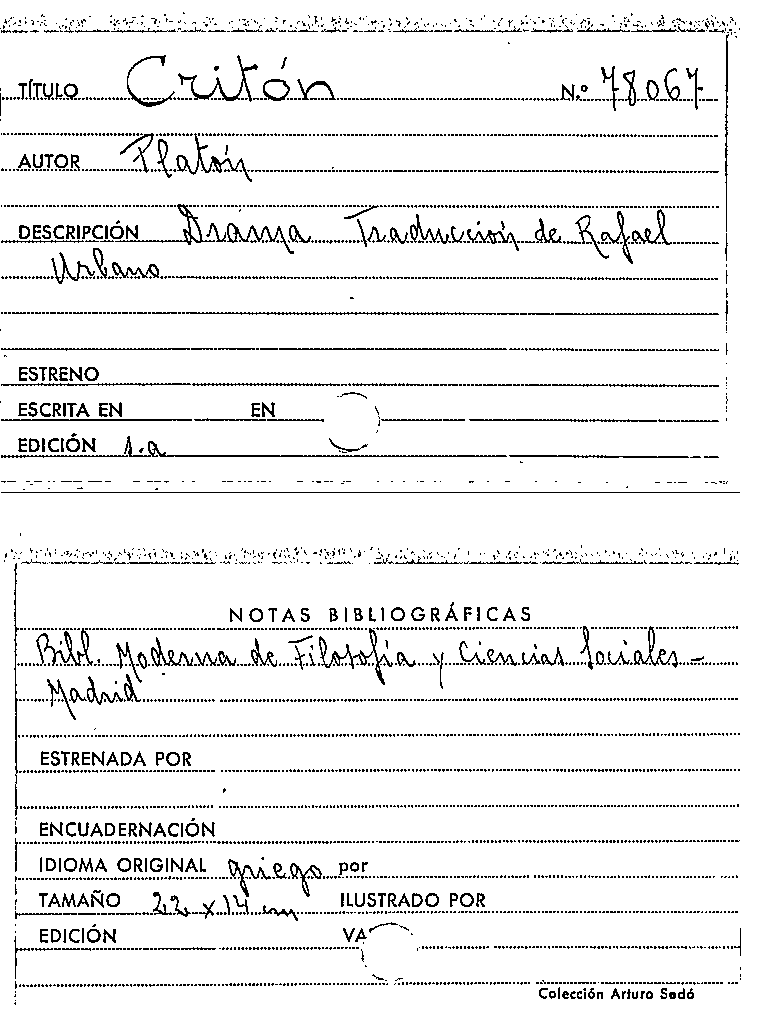 TÍTULO Critón N.º 78067
AUTOR Platón
DESCRIPCIÓN Drama Traducción de Rafael
Urbano
ESTRENO
ESCRITA EN EN
EDICIÓN s.a
NOTAS BIBLIOGRÁFICAS
Bibl. Moderna de Filosofía y Ciencias Sociales -
Madrid
ESTRENADA POR
ENCUADERNACIÓN
IDIOMA ORIGINAL griego por
TAMAÑO 22 x 14 cm ILUSTRADO POR
EDICIÓN
Colección Arturo Sedó